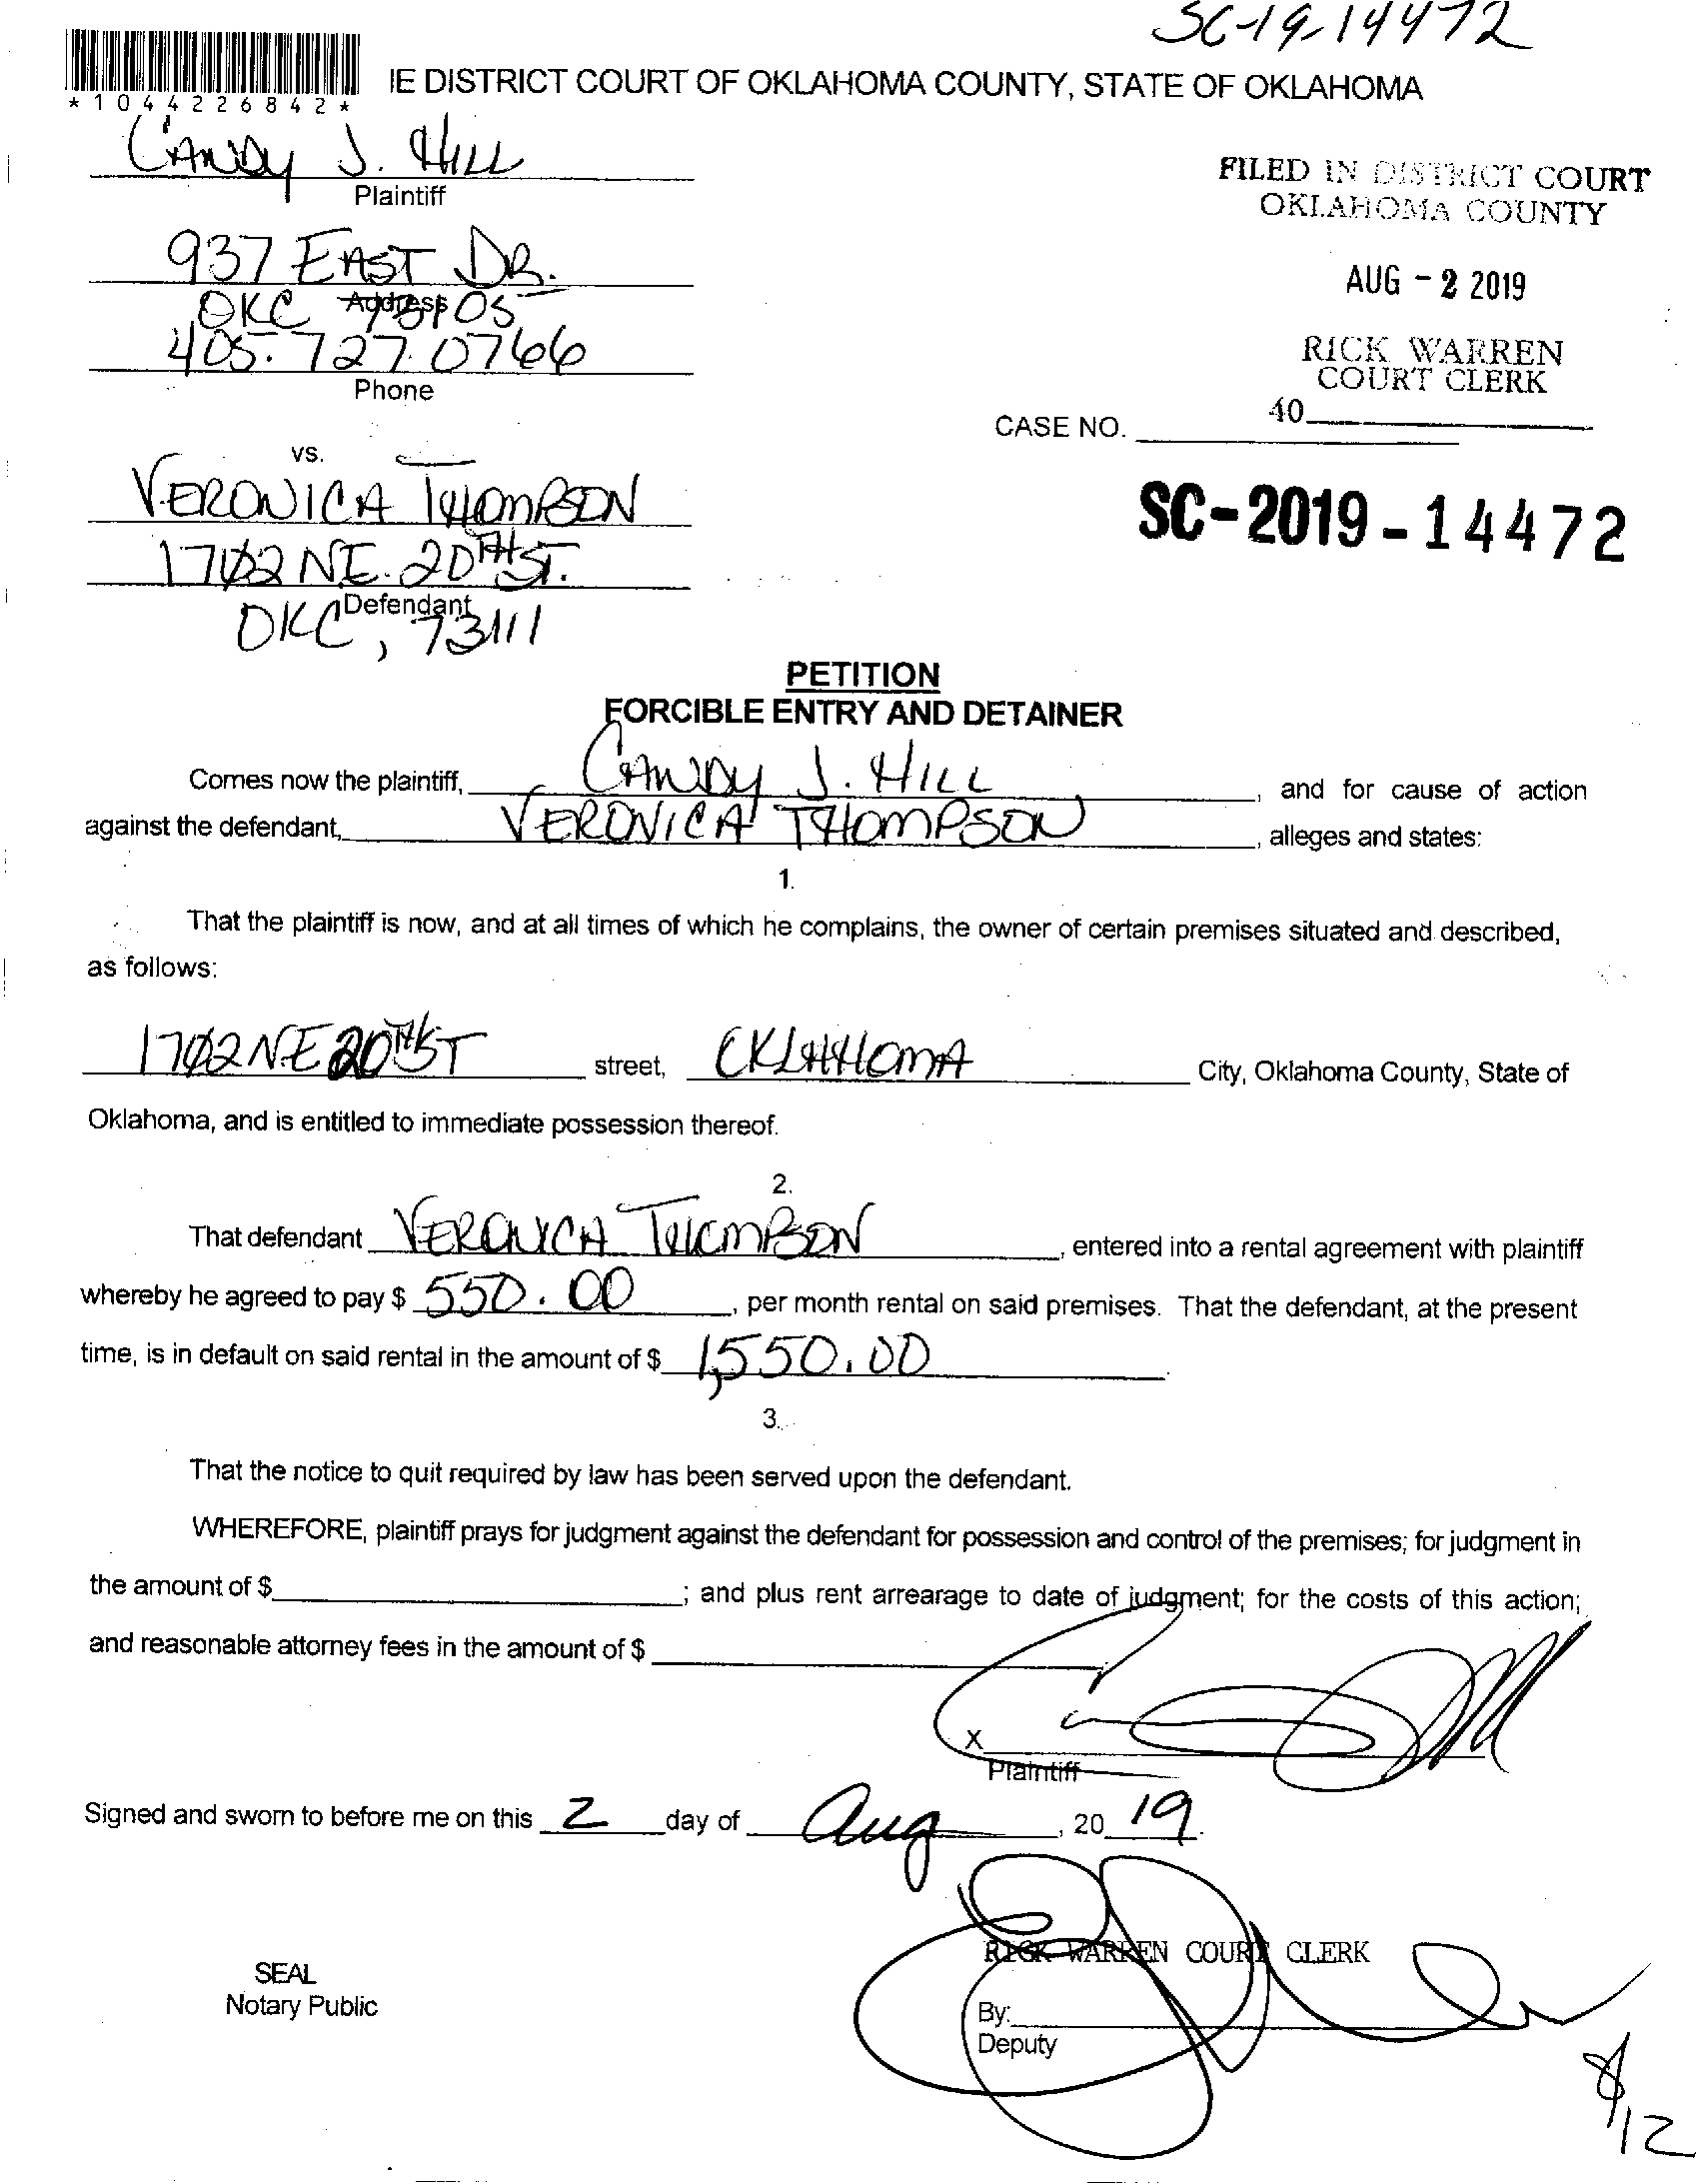 SC-19-14472
IE DISTRICT COURT OF OKLAHOMA COUNTY, STATE OF OKLAHOMA
*1044226842*
CANDY J. HILL
Plaintiff
FILED IN DISTRICT COURT
OKLAHOMA COUNTY
937 EAST DR.
AUG - 2 2019
Address
OKC 73105
405.727.0766
Phone
RICK WARREN
COURT CLERK
40
CASE NO.
vs.
VERONICA THOMPSON
SC-2019-14472
1702 NE. 20TH ST.
Defendant
OKC, 73111
PETITION
FORCIBLE ENTRY AND DETAINER
Comes now the plaintiff, CANDY J. HILL, and for cause of action
against the defendant, VERONICA THOMPSON, alleges and states:
1.
That the plaintiff is now, and at all times of which he complains, the owner of certain premises situated and described,
as follows:
1702 N.E 20TH ST street, OKLAHOMA City, Oklahoma County, State of
Oklahoma, and is entitled to immediate possession thereof.
2.
That defendant VERONICA THOMPSON, entered into a rental agreement with plaintiff
whereby he agreed to pay $ 550.00, per month rental on said premises. That the defendant, at the present
time, is in default on said rental in the amount of $ 1,550.00
3.
That the notice to quit required by law has been served upon the defendant.
WHEREFORE, plaintiff prays for judgment against the defendant for possession and control of the premises; for judgment in
the amount of $ ; and plus rent arrearage to date of judgment; for the costs of this action;
and reasonable attorney fees in the amount of $
X
Plaintiff
Signed and sworn to before me on this 2 day of Aug, 20 19.
RICK WARREN COURT CLERK
SEAL
Notary Public
By:
Deputy
8/12